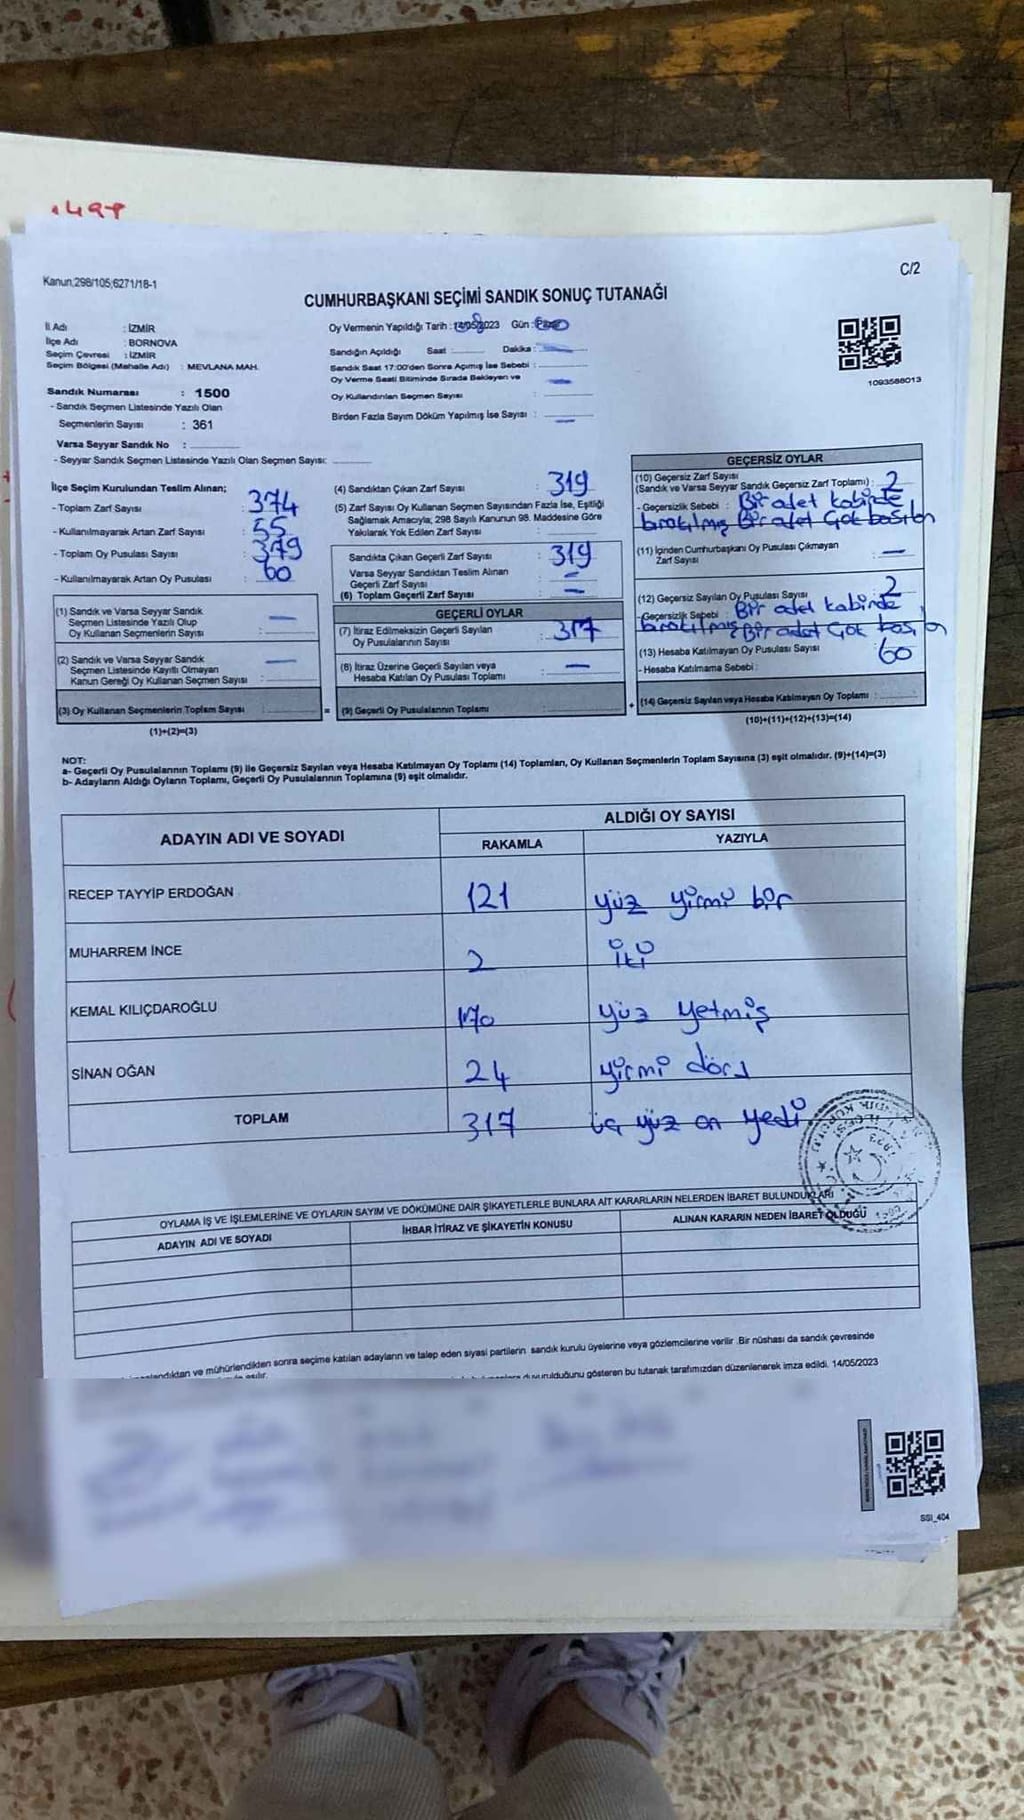 1497
Kanun;298/105;6271/18-1
C/2
CUMHURBAŞKANI SEÇİMİ SANDIK SONUÇ TUTANAĞI
İl Adı : İZMİR
İlçe Adı : BORNOVA
Seçim Çevresi : İZMİR
Seçim Bölgesi (Mahalle Adı) : MEVLANA MAH.
Sandık Numarası : 1500
- Sandık Seçmen Listesinde Yazılı Olan
Seçmenlerin Sayısı : 361
Varsa Seyyar Sandık No :
- Seyyar Sandık Seçmen Listesinde Yazılı Olan Seçmen Sayısı:
Oy Vermenin Yapıldığı Tarih : 14/05/2023 Gün : Pazar
Sandığın Açıldığı Saat: Dakika:
Sandık Saat 17:00'den Sonra Açılmış İse Sebebi :
Oy Verme Saati Bitiminde Sırada Bekleyen ve
Oy Kullandırılan Seçmen Sayısı :
Birden Fazla Sayım Döküm Yapılmış İse Sayısı :
1093588013
İlçe Seçim Kurulundan Teslim Alınan;
- Toplam Zarf Sayısı : 374
- Kullanılmayarak Artan Zarf Sayısı : 55
- Toplam Oy Pusulası Sayısı : 379
- Kullanılmayarak Artan Oy Pusulası : 60
(1) Sandık ve Varsa Seyyar Sandık
Seçmen Listesinde Yazılı Olup
Oy Kullanan Seçmenlerin Sayısı : —
(2) Sandık ve Varsa Seyyar Sandık
Seçmen Listesinde Kayıtlı Olmayan
Kanun Gereği Oy Kullanan Seçmen Sayısı : —
(3) Oy Kullanan Seçmenlerin Toplam Sayısı :
(1)+(2)=(3)
(4) Sandıktan Çıkan Zarf Sayısı : 319
(5) Zarf Sayısı Oy Kullanan Seçmen Sayısından Fazla İse, Eşitliği
Sağlamak Amacıyla; 298 Sayılı Kanunun 98. Maddesine Göre
Yakılarak Yok Edilen Zarf Sayısı :
Sandıkta Çıkan Geçerli Zarf Sayısı : 319
Varsa Seyyar Sandıktan Teslim Alınan
Geçerli Zarf Sayısı : —
(6) Toplam Geçerli Zarf Sayısı : —
GEÇERLİ OYLAR
(7) İtiraz Edilmeksizin Geçerli Sayılan
Oy Pusulasının Sayısı : 317
(8) İtiraz Üzerine Geçerli Sayılan veya
Hesaba Katılan Oy Pusulası Toplamı : —
= (9) Geçerli Oy Pusulalarının Toplamı :
GEÇERSİZ OYLAR
(10) Geçersiz Zarf Sayısı
(Sandık ve Varsa Seyyar Sandık Geçersiz Zarf Toplamı) : 2
- Geçersizlik Sebebi : Bir adet kabinde
bırakılmış Bir adet Çok basılan
(11) İçinden Cumhurbaşkanı Oy Pusulası Çıkmayan
Zarf Sayısı : —
(12) Geçersiz Sayılan Oy Pusulası Sayısı : 2
- Geçersizlik Sebebi : Bir adet kabinde
bırakılmış Bir adet Çok basılan
(13) Hesaba Katılmayan Oy Pusulası Sayısı : 60
- Hesaba Katılmama Sebebi :
+ (14) Geçersiz Sayılan veya Hesaba Katılmayan Oy Toplamı :
(10)+(11)+(12)+(13)=(14)
NOT:
a- Geçerli Oy Pusulalarının Toplamı (9) ile Geçersiz Sayılan veya Hesaba Katılmayan Oy Toplamı (14) Toplamları, Oy Kullanan Seçmenlerin Toplam Sayısına (3) eşit olmalıdır. (9)+(14)=(3)
b- Adayların Aldığı Oyların Toplamı, Geçerli Oy Pusulalarının Toplamına (9) eşit olmalıdır.
ADAYIN ADI VE SOYADI
ALDIĞI OY SAYISI
RAKAMLA YAZIYLA
RECEP TAYYİP ERDOĞAN 121 yüz yirmi bir
MUHARREM İNCE 2 iki
KEMAL KILIÇDAROĞLU 170 yüz yetmiş
SİNAN OĞAN 24 yirmi dört
TOPLAM 317 üç yüz on yedi
OYLAMA İŞ VE İŞLEMLERİNE VE OYLARIN SAYIM VE DÖKÜMÜNE DAİR ŞİKAYETLERLE BUNLARA AİT KARARLARIN NELERDEN İBARET BULUNDUKLARI
ADAYIN ADI VE SOYADI İHBAR İTİRAZ VE ŞİKAYETİN KONUSU ALINAN KARARIN NEDEN İBARET OLDUĞU
ve mühürlendikten sonra seçime katılan adayların ve talep eden siyasi partilerin sandık kurulu üyelerine veya gözlemcilerine verilir .Bir nüshası da sandık çevresinde
duyurulduğunu gösteren bu tutanak tarafımızdan düzenlenerek imza edildi. 14/05/2023
SSI_404